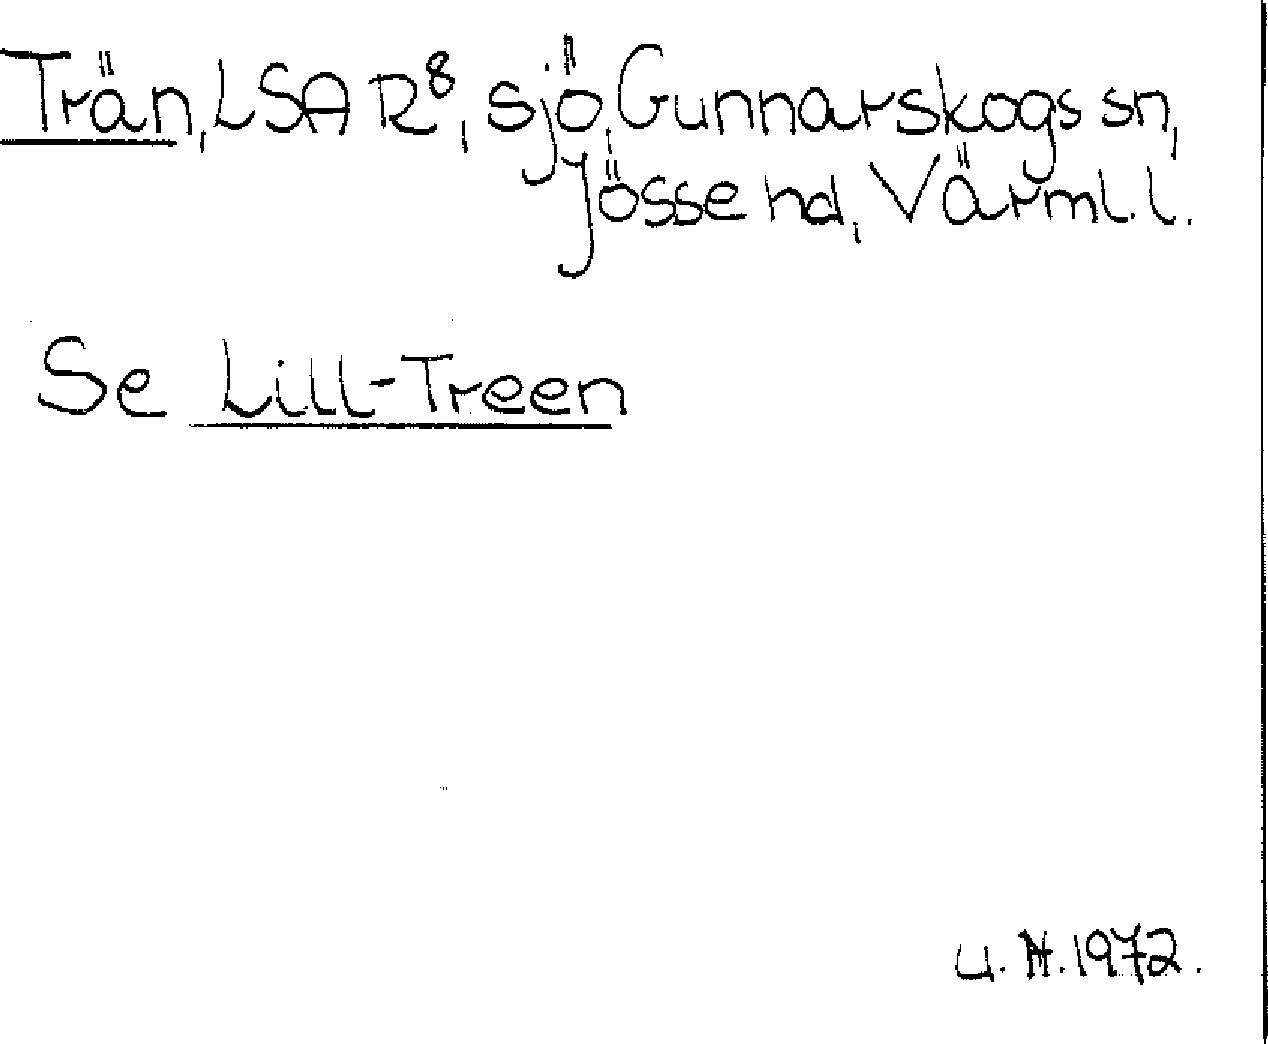 Trän, LSA R⁸, sjö, Gunnarskogs sn,
Jösse hd, Värml. l.
Se Lill-Treen
U. H. 1972.